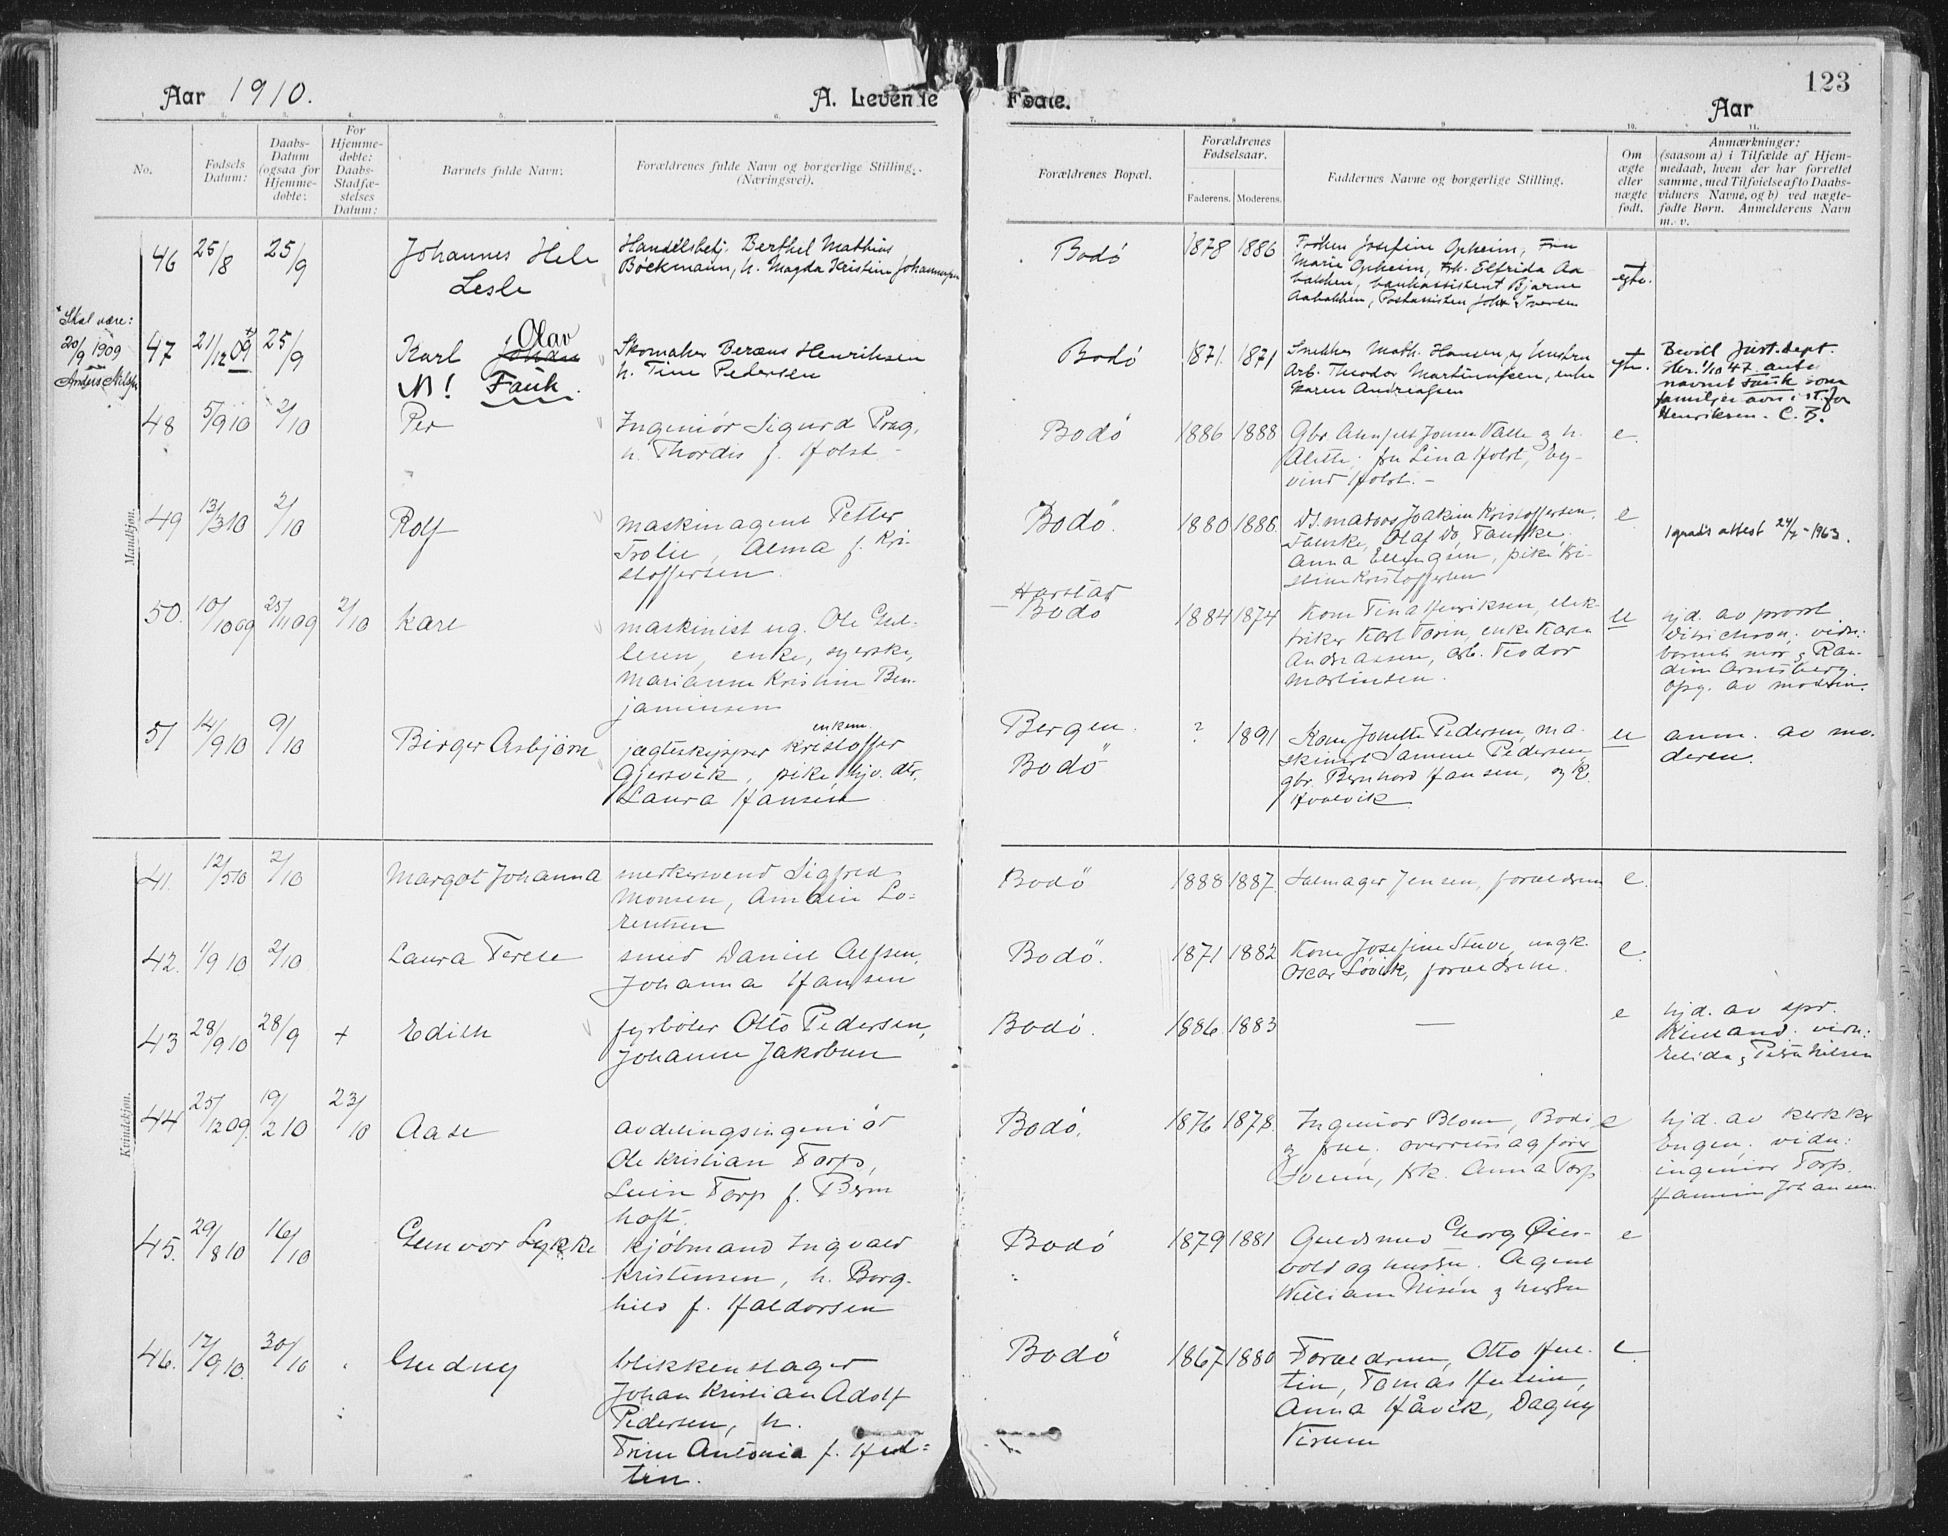 Aar 1910.
A. Levende
Fødte.
Aar
123
1. 2. 3. 4. 5. 6. 7. 8 9. 10. 11.
No.
Fødsels Datum:
Daabs-Datum (ogsaa for Hjemmedøbte:
For Hjemmedøbte: Daabs-Stadfæstelses Datum:
Barnets fulde Navn:
Forældrenes fulde Navn og borgerlige Stilling. (Næringsvei).
Forældrenes Bopæl.
Forældrenes Fødselsaar.
Faderens. Moderens.
Faddernes Navne og borgerlige Stilling.
Om ægte eller uægte født.
Anmærkninger:
(saasom a) i Tilfælde af Hjem-
medaab, hvem der har forrettet
samme, med Tilføielse af to Daabs-
vidners Navne, og b) ved uægte-
fødte Børn. Anmelderens Navn
m. v.
Mandkjøn.
46 25/8 25/9 Johannes
Lesle
Handelsbetj. Berthel Mathius
Böckmann, h. Magda Kristine Johannessen
Bodó 1878 1886
Frøken Josefine Opheim, Fru
Marie Opheim, Frk. Elfrida Aa
bakken, bankassistent Bjarne
Aabakken, Postassisten Johs Iversen
egte.
Skal være:
20/9 1909
Anders Nilsen
47 21/12 09 25/9 Karl Johan Olav
N! Fauk.
Skomaker Beræus Henriksen
h. Tine Pedersen
Bodó 1871. 1871
Snekker Math. Hansen og hustru
Arb. Theodor Martinussen, enke
Maren Andreassen
egte.
Bevill Just. dept.
1/10 47. anta
navnet Fauk som
familjenavn i st. for
Henriksen. C. B.
48 5/9 10 2/10 Per
Ingeniør Sigurd Prag,
h. Thordis f. Holst
Bodó 1886 1888
Jonsen Valle og h.
Alette, fru Lina Holst, Ey-
vind Holst. -
e.
49 13/3 10 2/10 Rolf
maskinagent Petter
Trolie, Alma f. Kri-
stoffersen.
Bodó. 1880 1886.
Joakim Kristoffersen,
Fauske, Olaf Do, Fauske.
Anna Ellingsen, pike Kri-
stine Kristoffersen
e
1963.
50. 10/10 09 25/11 09 2/10 Kare
maskinist ug. Ole
enke, syerske,
Marianne Kristine Ben-
jaminsen
Harstad
Bodó 1884 1874
Kone Tina Henriksen, elek-
triker Karl Torin, enke Karen
Andreassen, arb. Teodor
Martinsen.
ue
hjd. av provst
Ditrichson; vidn.:
barnets mor og Ran-
dine Arnesberg
opg. av moderen.
51 14/9 10 9/10 Birger Asbjørn
enkem.
jægteskipper Kristoffer
Gjersvik, pike hjv. dtr.
Laura Hansen
Bergen.
Bodö ? 1891
Kone Jonette Pedersen, ma-
skinist Samme Pedersen,
gbr. Bernhard Hansen, og K.
Hvalvik
ue
anm. av mo-
deren.
Kvindekjøn.
41. 12/5 10 2/10 Margot Johanna
murkersvend Sigfred
Monsen, Amalie Lo-
rentsen
Bodö 1888 1887.
Salmager Jensen, forældrene
e.
42. 1/9 10 2/10. Laura Terese
smed Daniel Alfsen,
Johanna Hansen
Bodö. 1871 1882
Kone Josefine Stuve, ungk.
Oscar Løvik, forældrene.
e.
43 28/9 10 28/9 + Edith
fyrbøter Otto Pedersen,
Johanne Jakobsen
Bodó. 1886 1883
—
e
hjd. av spr.
Kielland. vidn.:
Elida og Petra Nilsen
44 25/12 09. 19/2 10 23/10 Aase
avdelingsingeniør
Ole Kristian Torp,
Torp f. Bern
hoft.
Bodó. 1876 1878.
Ingeniør Blom, Bodö
og frue, overretssagfører
frk. Anna Torp
e
hjd. av kirkker
Engen. vidn:
ingeniør Torp.
Johansen.
45. 29/8 10 16/10 Gunvor Lykke
kjøbmand Ingvald
Kristensen, h. Borg-
hild f. Haldorsen
Bodó 1879 1881
Guldsmed Georg Øies-
vold og hustru. Agent
William Nisen og hustru
e
46. 17/9 10. 30/10 Gudny
blikkenslager
Johan Kristian Adolf
Pedersen, h.
Trine Antonia f. Hel-
tin.
Bodö 1867 1880
Forældrene, Otto Hel-
tin, Tomas Heltin,
Anna Håvik, Dagny
e.